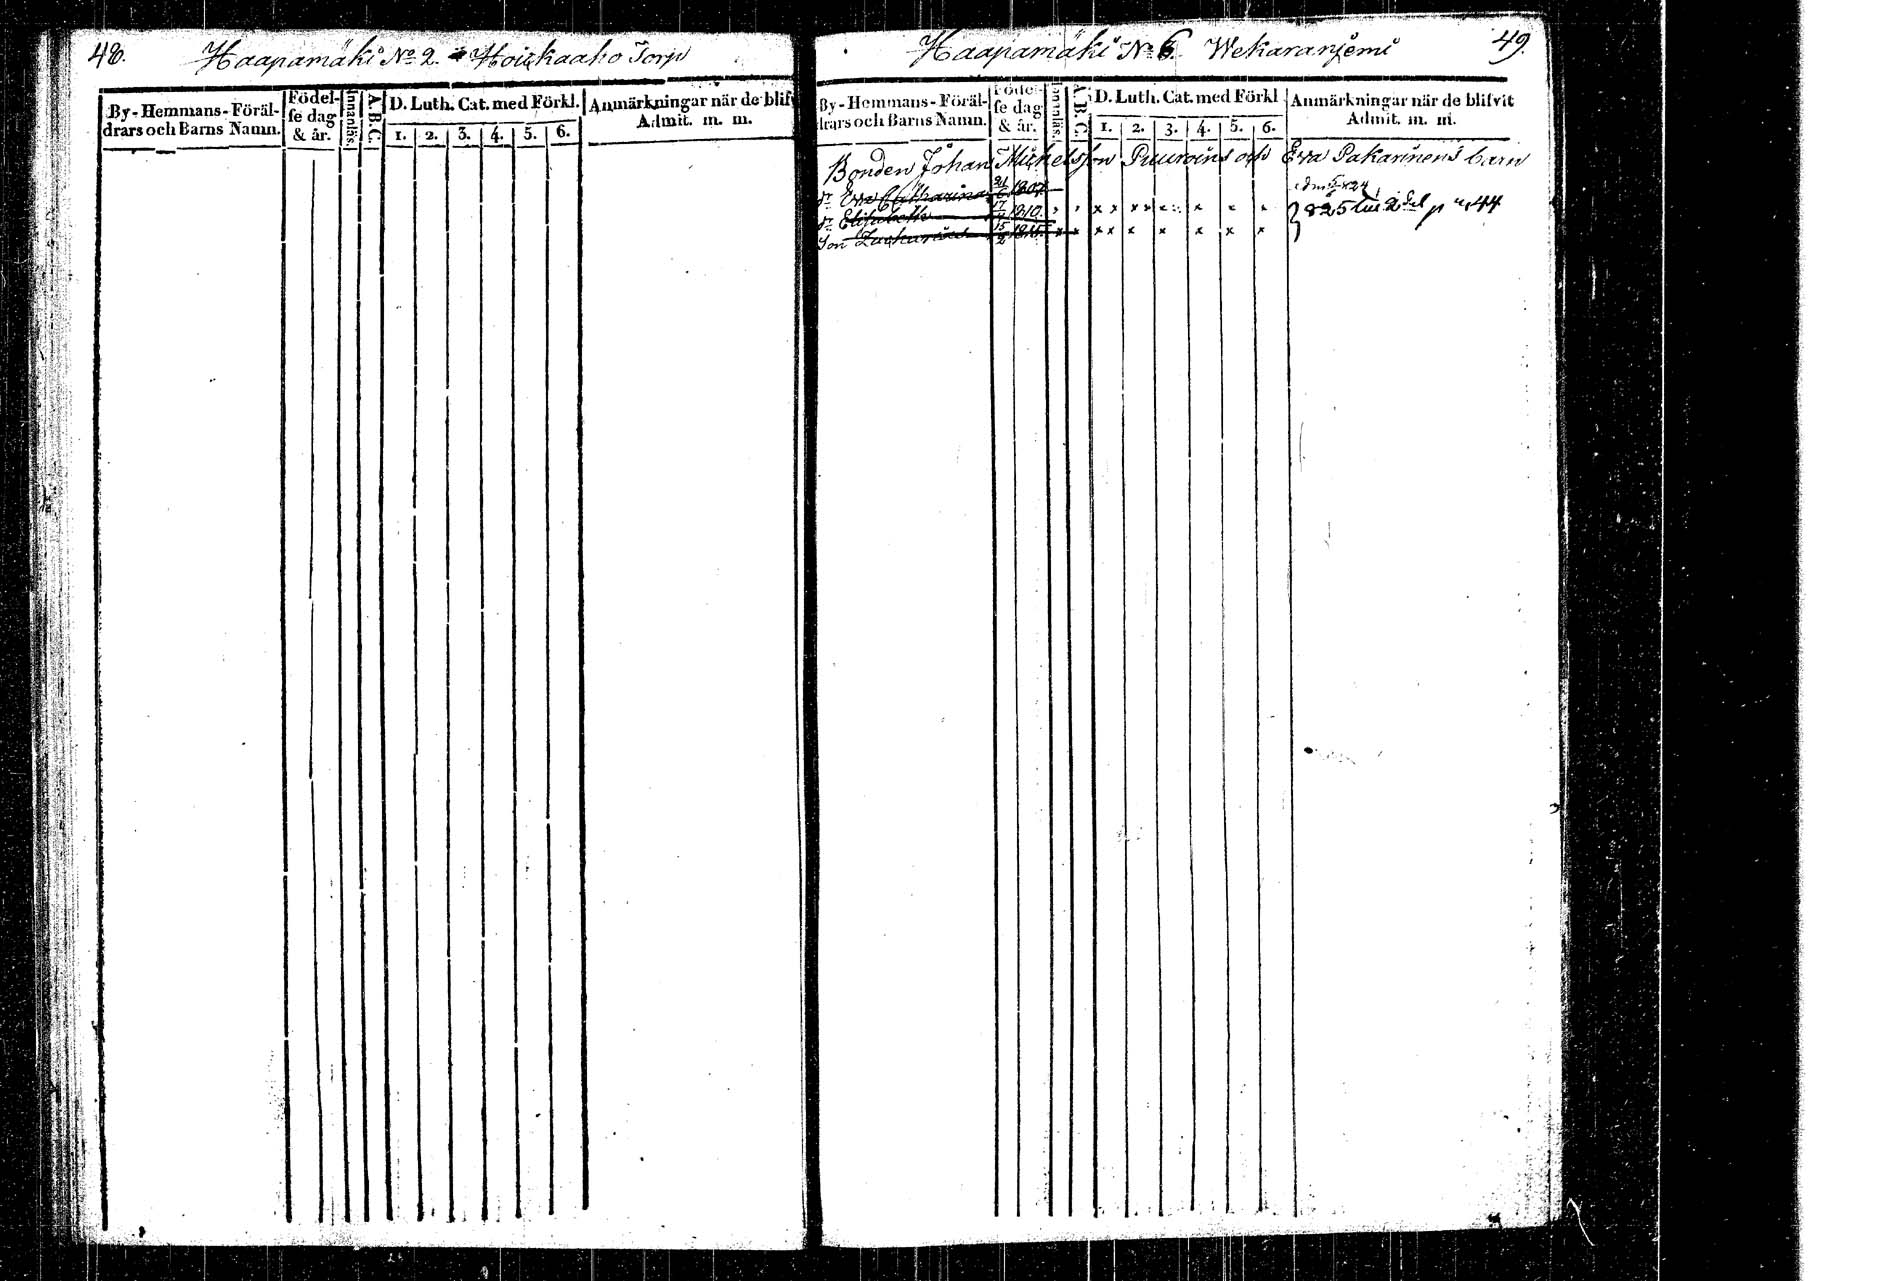 48. Haapamäki No 2. Hoikkaaho Torp
By-Hemmans-Föräl-
drars och Barns Namn.
Födel-
se dag
& år.
Innanläs.
A.B.C.
D. Luth. Cat. med Förkl.
1. 2. 3. 4. 5. 6.
Anmärkningar när de blifv
Admit. m. m.
Haapamäki No 6. Wekaraniemi 49.
By-Hemmans-Föräl-
drars och Barns Namn.
Födel-
se dag
& år.
Innanläs.
A.B.C.
D. Luth. Cat. med Förkl
1. 2. 3. 4. 5. 6.
Anmärkningar när de blifvit
Admit. m. m.
Bonden Johan Michelsson Puuroins och Eva Pakarinens barn
dr Eva Catharina 21/6 1807 adm 824
dr Elisabeth 17/ 1810. x x x x x x x x
Son Zacharias 15/2 1815. x x x x x x x x x
825 2 del p 44